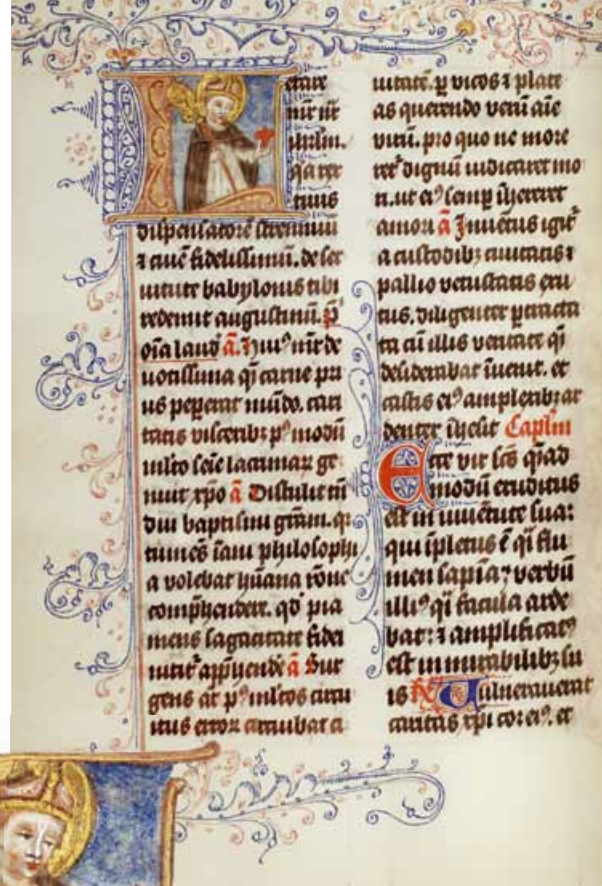 Letare
mr̄ nr̄
ihrlm.
q̄a rex
tuus
dispensatorē strenuū
⁊ ciuē fidelissimū. de ser
uitute babylonis tibi
redemit augustinū. p̄s
oīa laud ā. Huiꝯ mr̄ de
uotissima q̄ carne pri
us peperat mūdo. cari
tatis visceribꝫ pꝯ modū
mlto seīe lacrimaꝝ ge
nuit xp̄o ā Distulit tn̄
diu baptismi grām. qꝛ
tumēs iam philosophi
a volebat hūana rōne
comp̄hendere. qd̄ pia
mens sagacitate fidei
nitit᷑ app̄hende ā Sur
gens at̄ pꝯ mltos circu
itus error circuibat ci
uitatē. ꝑ vicos ⁊ plate
as querendo verū aīe
virū. pro quo ne more
ret᷑ dignū iudicaret mo
ri. ut eiꝯ semꝑ īhereret
amori ā Inuētus igit᷑
a custodibꝫ ciuitatis ⁊
pallio vetustatis exu
tus. diligenter ꝑtracta
ta cū illis veritate q̄
desiderabat īuenit. et
castis eiꝯ amplexibꝫ ar
denter īhesit Caplm
Ecce vir scs̄ q̄mad
modū eruditus
est in iuuētute sua:
qui īpletus ē q̄i flu
men sapīa ⁊ verbū
illiꝯ q̄i facula arde
bat: ⁊ amplificatꝯ
est in mirabilibꝫ su
is ℟ Uulnerauerat
caritas xp̄i cor eiꝯ. et